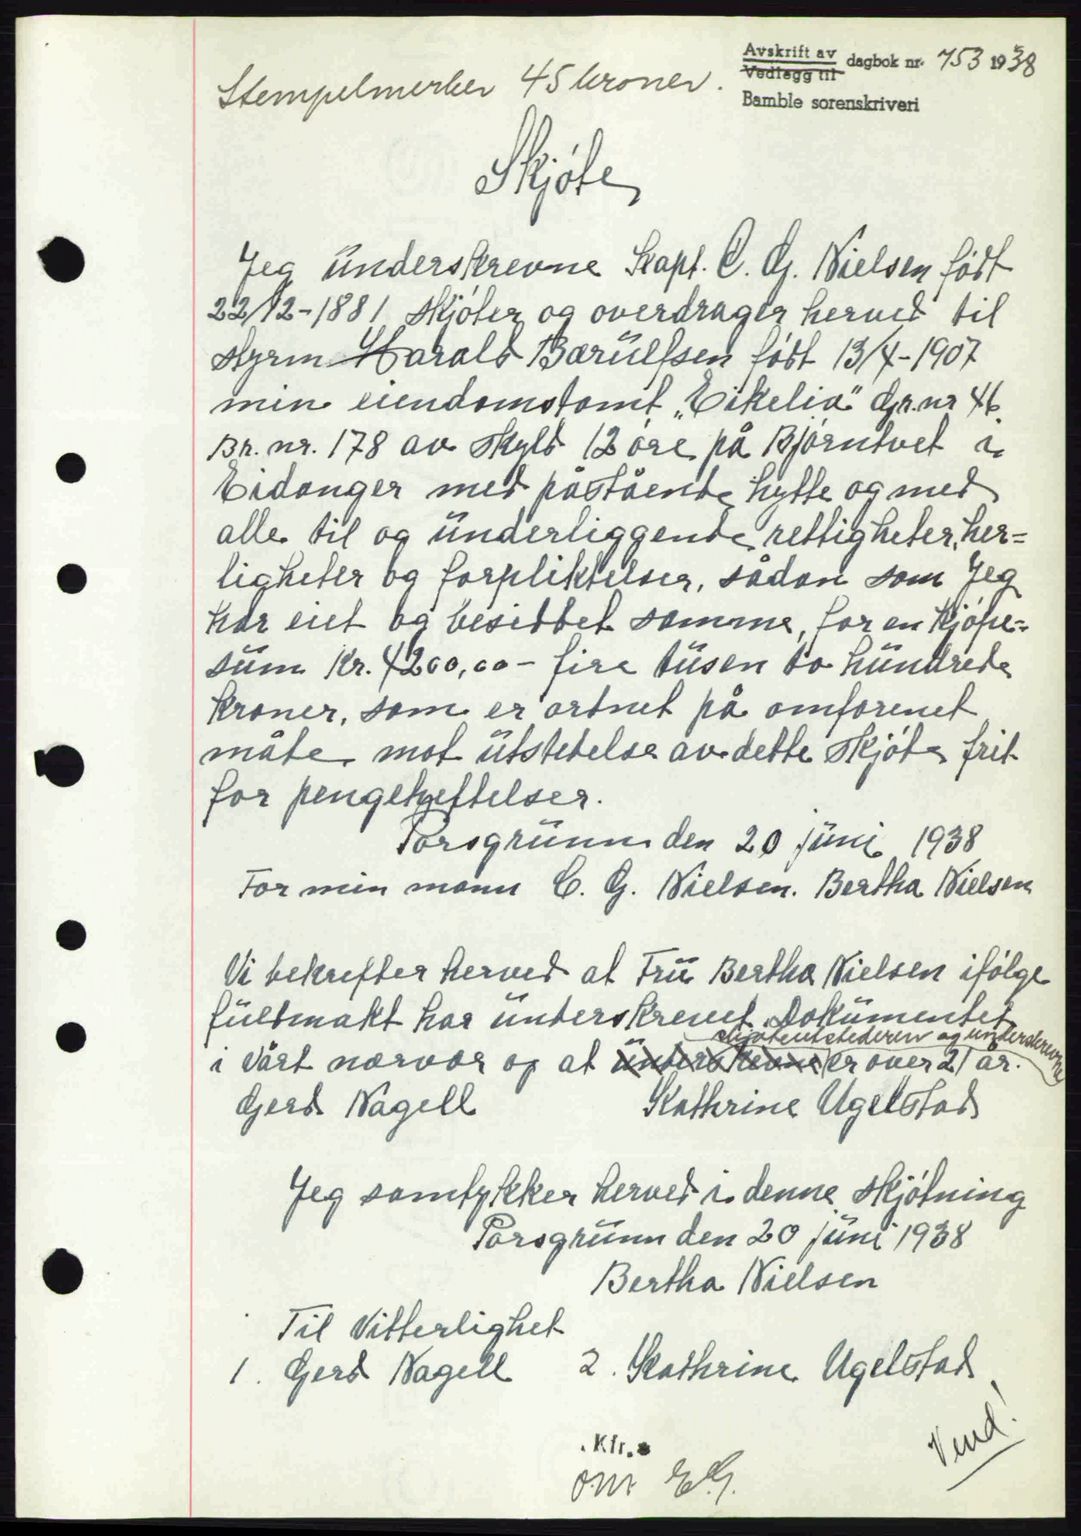 Avskrift av
Vedlegg til
dagbok nr. 753 1938
Bamble sorenskriveri
Stempelmerker 45 kroner.
Skjóte
Jeg ünderskrevne Kapt. C. G. Nielsen födt
22/12-1881 skjóter og overdrager herved til
styrm Harald Bærülfsen födt 13/4-1907
min eiendomstomt „Eikelia" Gr. nr 46
Br. nr. 178 av skyld 12 óre på Bjórntvet i
Eidanger med påstående hytte og med
alle til og ünderliggende rettigheter, her=
ligheter og forpliktelser, sådan som Jeg
har eiet og besiddet samme, for en kjópe=
süm Kr. 4200,00 - fire tüsen to hündrede
kroner, som er ordnet på omforenet
måte mot ütstedelse av dette skjóte frit
for pengeheftelser.
Porsgrünn den 20 jüni 1938
For min mann C. G. Nielsen. Bertha Nielsen
Vi bekrefter herved at Frü Bertha Nielsen ifólge
füldmakt har ünderskrevet Dokümentet
skjóteutstederen og underskrevne
i vårt nærvær og at ünderskrevne er over 21 år.
Gerd Nagell Kathrine Ugelstad
Jeg samtykker herved i denne skjótning
Porsgrünn den 20 jüni 1938
Bertha Nielsen
Til Vitterlighet
1. Gerd Nagell 2. Kathrine Ugelstad
Vend!
. Kfr.
OM EG.